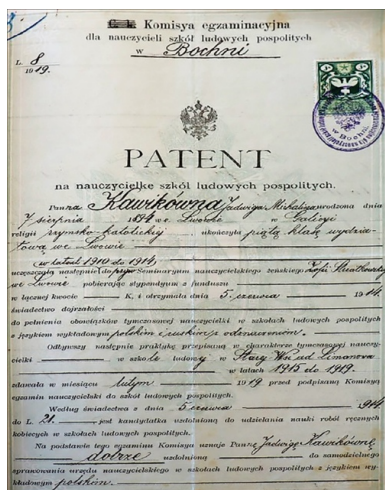 Komisya egzaminacyjna
dla nauczycieli szkół ludowych pospolitych
w Bochni
L. 8
1919.
PATENT
na nauczycielkę szkół ludowych pospolitych.
Panna Kawikówna Jadwiga Michalina urodzona dnia
7 sierpnia 1894 we Lwowie w Galicyi
religii rzymsko katolickiej ukończyła piątą klasę wydzia-
łową we Lwowie
w latach 1910 do 1914
uczęszczała następnie do Seminaryum nauczycielskiego żeńskiego Zofii Strzałkowskiej
we Lwowie pobierając stypendyum z funduszu
w łącznej kwocie K, i otrzymała dnia 5. czerwca 1914.
świadectwo dojrzałości
do pełnienia obowiązków tymczasowej nauczycielki w szkołach ludowych pospolitych
z językiem wykładowym polskim i ruskim z odznaczeniem.
Odbywszy następnie praktykę przepisaną w charakterze tymczasowej nauczy-
cielki w szkole ludowej w Starej Wsi ad Limanowa
w latach 1915 do 1919.
zdawała w miesiącu lutym 1919 przed podpisaną Komisyą
egzamin nauczycielski do szkół ludowych pospolitych.
Według świadectwa z dnia 5 czerwca 1914
do L. 21. jest kandydatka uzdolnioną do udzielania nauki robót ręcznych
kobiecych w szkołach ludowych pospolitych.
Na podstawie tego egzaminu Komisya uznaje Pannę Jadwigę Kawikównę
dobrze uzdolnioną do samodzielnego
sprawowania urzędu nauczycielskiego w szkołach ludowych pospolitych z językiem wy-
kładowym polskim.